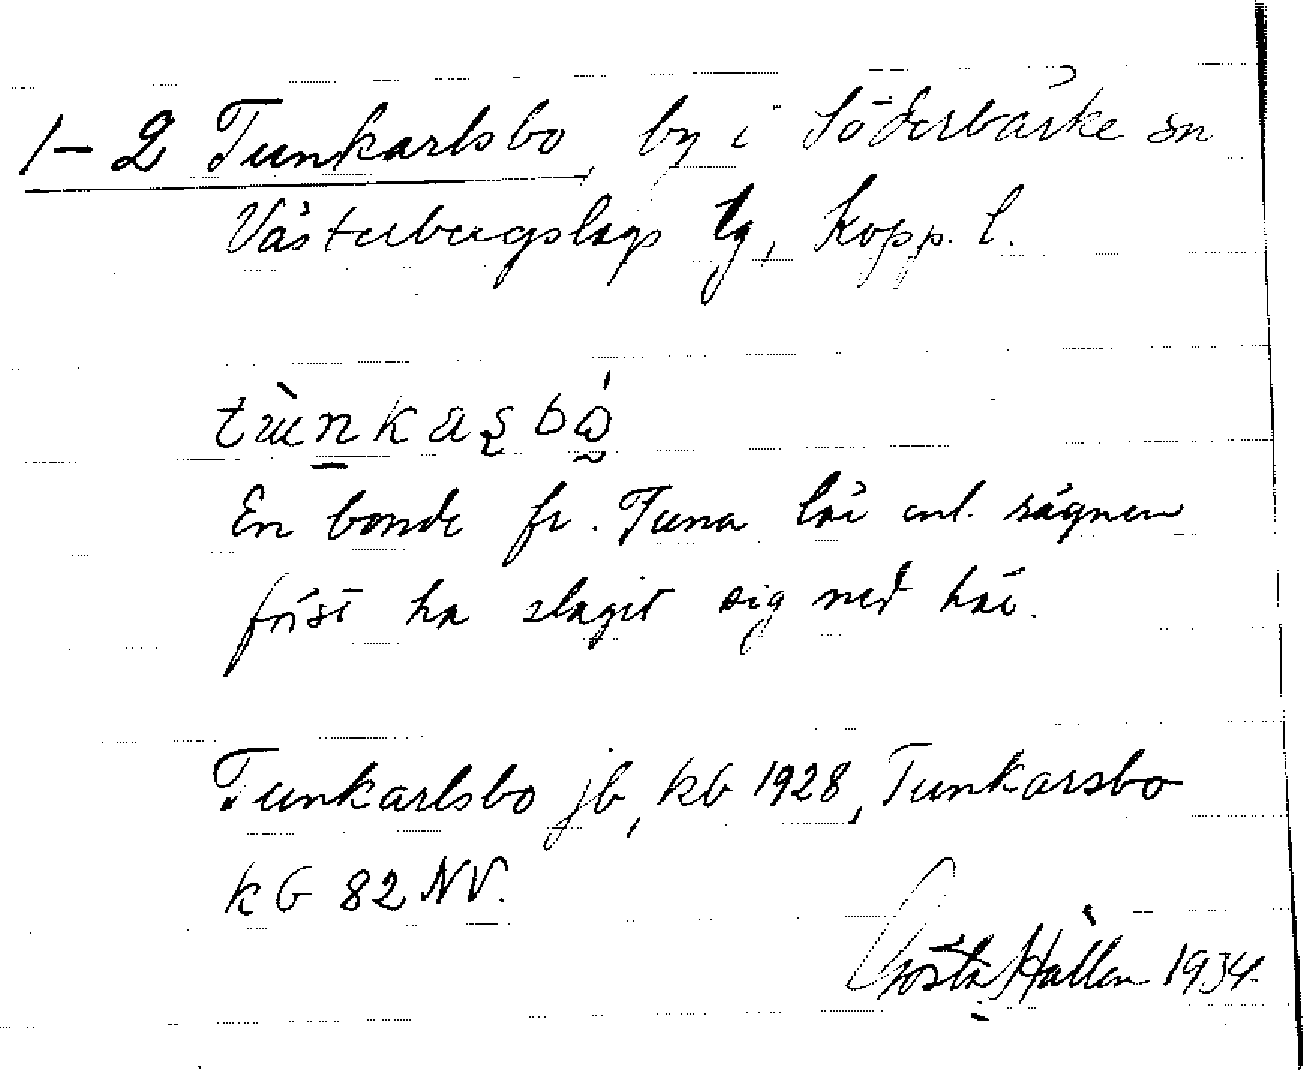 1–2 Tunkarlsbo, by i Söderbärke sn
Västerbergslags tg, Kopp. l.
En bonde fr. Tuna lär enl. sägnen
först ha slagit sig ned här.
Tunkarlsbo jb, kb 1928, Tunkarsbo
kG 82 NV.
Gösta Hallén 1934.